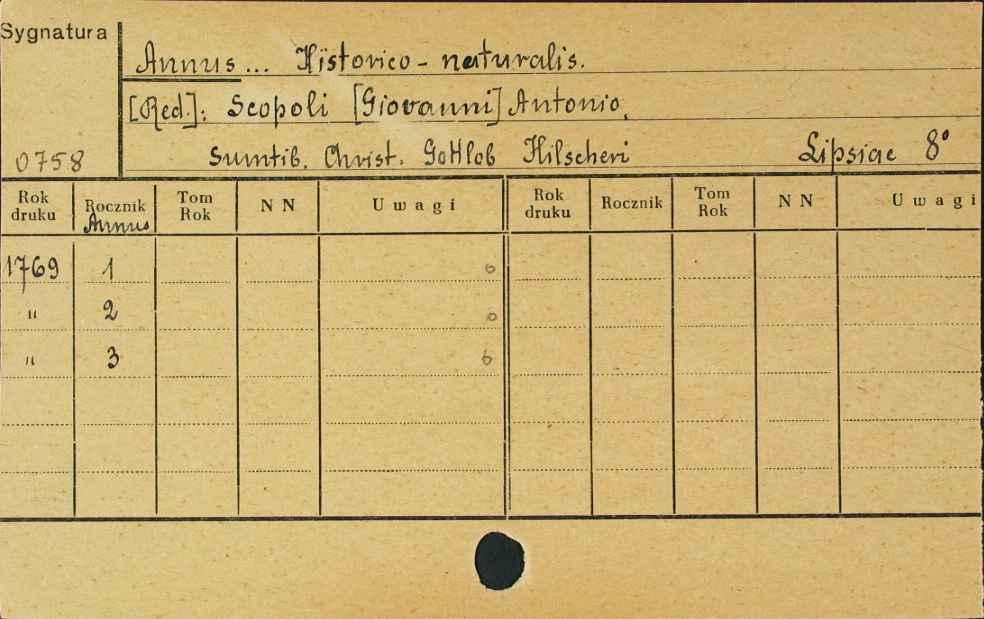 Sygnatura
Annus ... Historico - naturalis.
[Red.]: Scopoli [Giovanni] Antonio,
0758 Sumtib. Christ. Gottlob Hilscheri Lipsiae 8°
Rok druku Rocznik Annus Tom Rok N N Uwagi Rok druku Rocznik Tom Rok N N Uwagi
1769 1 6
" 2 0
" 3 6